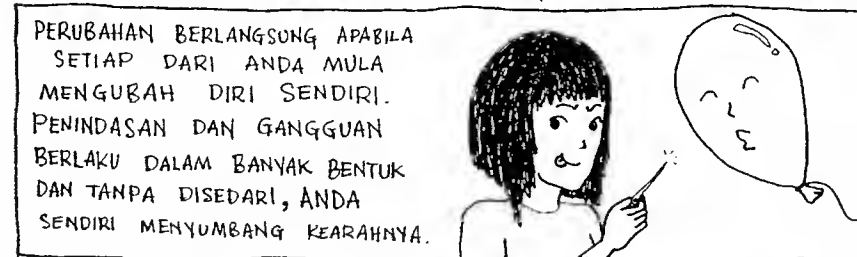 PERUBAHAN BERLANGSUNG APABILA
SETIAP DARI ANDA MULA
MENGUBAH DIRI SENDIRI.
PENINDASAN DAN GANGGUAN
BERLAKU DALAM BANYAK BENTUK
DAN TANPA DISEDARI, ANDA
SENDIRI MENYUMBANG KEARAHNYA.